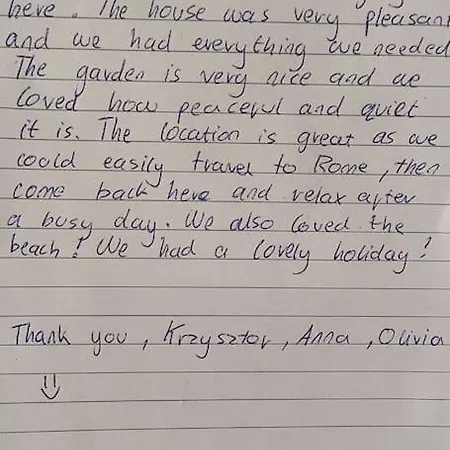 here. The house was very pleasant
and we had everything we needed
The garden is very nice and we
loved how peaceful and quiet
it is. The location is great as we
could easily travel to Rome, then
come back here and relax after
a busy day. We also loved the
beach! We had a lovely holiday!
Thank you, Krzysztof, Anna, Olivia